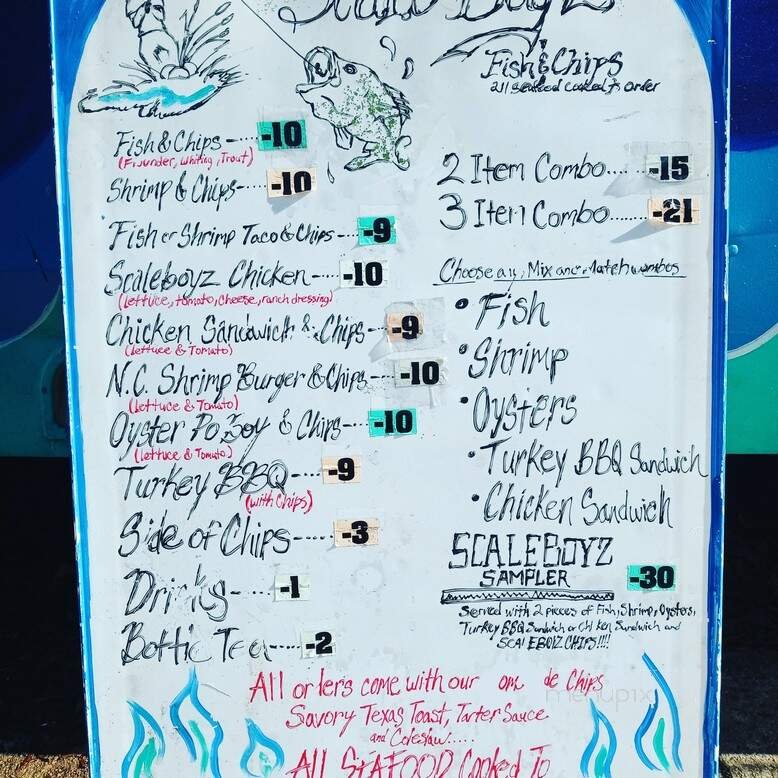 Scale Boyz
Fish & Chips
all seafood cooked to order
Fish & Chips -10
(Flounder, Whiting, Trout)
Shrimp & Chips -10
Fish or Shrimp Taco & Chips -9
Scaleboyz Chicken -10
(lettuce, tomato, cheese, ranch dressing)
Chicken Sandwich & Chips -9
(lettuce & Tomato)
N.C. Shrimp Burger & Chips -10
(lettuce & Tomato)
Oyster Po Boy & Chips -10
(lettuce & Tomato)
Turkey BBQ -9
(with Chips)
Side of Chips -3
Drinks -1
Bottle Tea -2
2 Item Combo.... -15
3 Item Combo....... -21
Choose any, Mix and Match combos
• Fish
• Shrimp
• Oysters
• Turkey BBQ Sandwich
• Chicken Sandwich
SCALEBOYZ
SAMPLER -30
Served with 2 pieces of Fish, Shrimp, Oysters,
Turkey BBQ Sandwich or Chicken Sandwich and
SCALEBOYZ CHIPS!!!!
All orders come with our de Chips
Savory Texas Toast, Tarter Sauce
and Coleslaw....
All SEAFOOD Cooked To
menupix